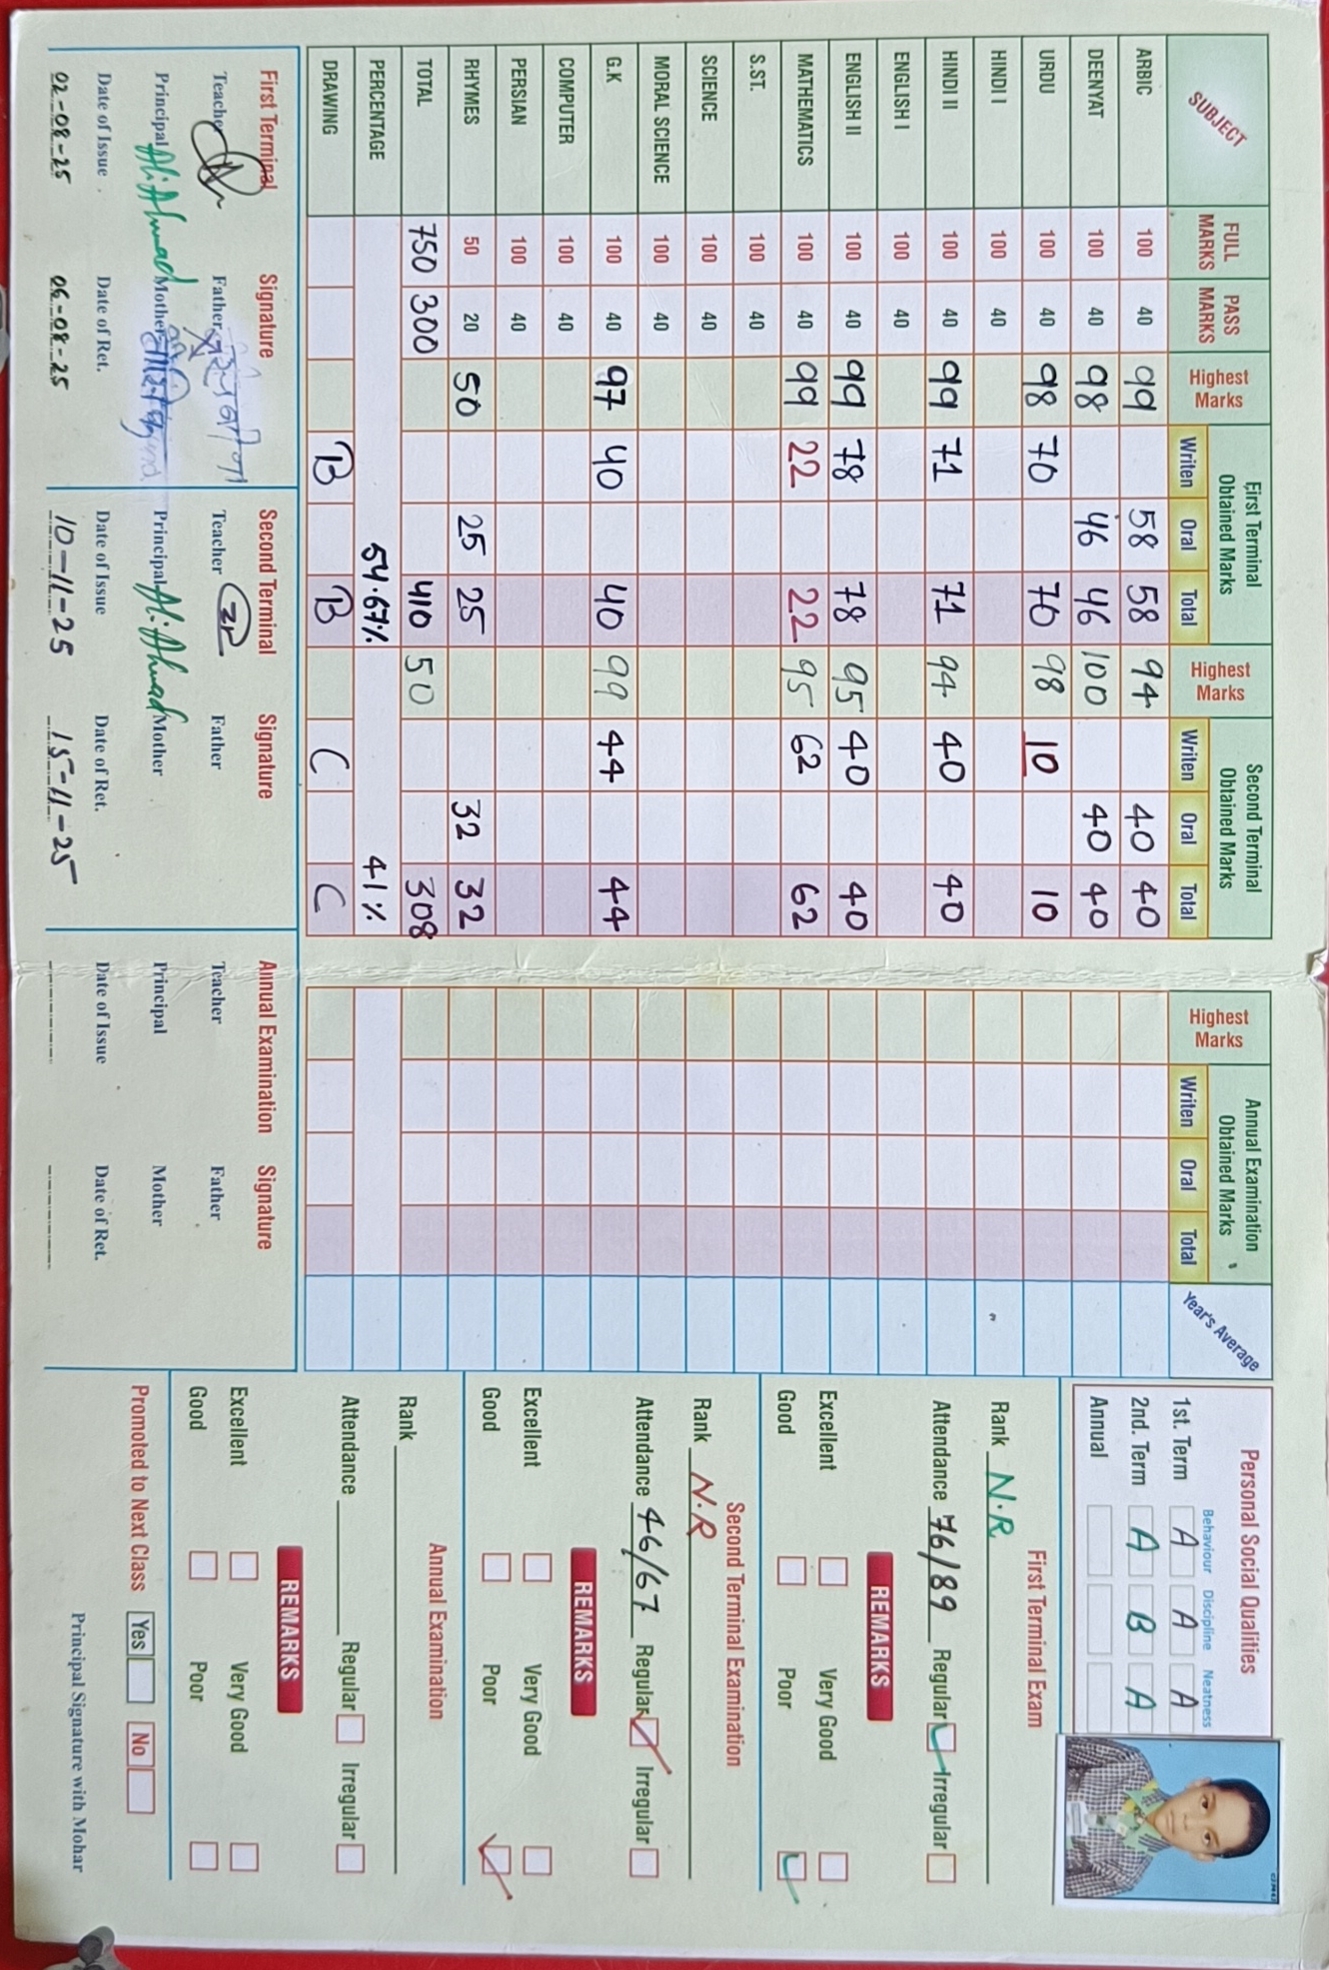 SUBJECT FULL MARKS PASS MARKS Highest Marks First Terminal Obtained Marks Writen Oral Total Highest Marks Second Terminal Obtained Marks Writen Oral Total Highest Marks Annual Examination Obtained Marks Writen Oral Total Year's Average
ARBIC 100 40 99 58 58 94 40 40
DEENYAT 100 40 98 46 46 100 40 40
URDU 100 40 98 70 70 98 10 10
HINDI I 100 40
HINDI II 100 40 99 71 71 94 40 40
ENGLISH I 100 40
ENGLISH II 100 40 99 78 78 95 40 40
MATHEMATICS 100 40 99 22 22 95 62 62
S.ST. 100 40
SCIENCE 100 40
MORAL SCIENCE 100 40
G.K 100 40 97 40 40 99 44 44
COMPUTER 100 40
PERSIAN 100 40
RHYMES 50 20 50 25 25 32 32
TOTAL 750 300 410 50 308
PERCENTAGE 54.67% 41%
DRAWING B B C C
First Terminal Signature
Teacher Father
Principal Ali Ahmad Mother
Date of Issue Date of Ret.
02-08-25 06-08-25
Second Terminal Signature
Teacher Father
Principal Ali Ahmad Mother
Date of Issue Date of Ret.
10-11-25 15-11-25
Annual Examination Signature
Teacher Father
Principal Mother
Date of Issue Date of Ret.
Personal Social Qualities
Behaviour Discipline Neatness
1st. Term A A A
2nd. Term A B A
Annual
First Terminal Exam
Rank N.R
Attendance 76/89 Regular Irregular
REMARKS
Excellent Very Good
Good Poor
Second Terminal Examination
Rank N.R
Attendance 46/67 Regular Irregular
REMARKS
Excellent Very Good
Good Poor
Annual Examination
Rank
Attendance Regular Irregular
REMARKS
Excellent Very Good
Good Poor
Promoted to Next Class Yes No
Principal Signature with Mohar